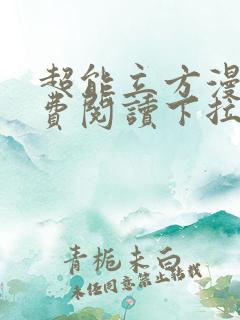 超能立方漫
費閱讀下拉
青梔未白
未经同意禁止转载